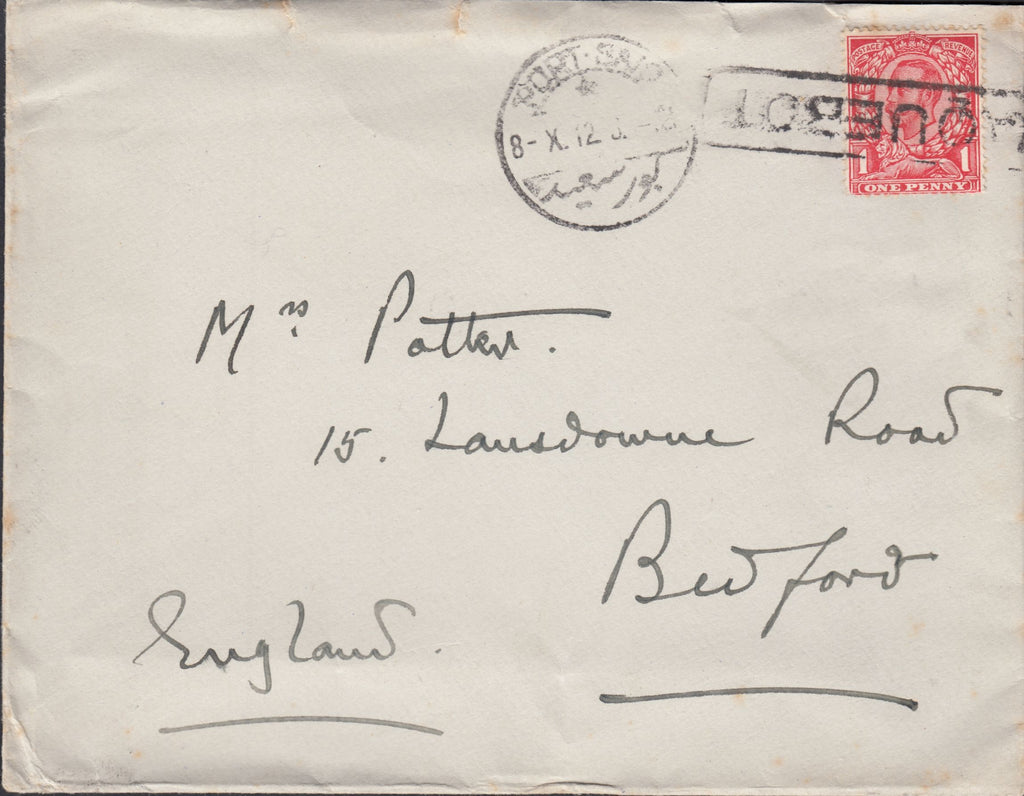 PORT-SAID
8-X.12
بور سعيد
PAQUEBOT
POSTAGE REVENUE
1 1
ONE PENNY
Mrs Potter.
15. Lansdowne Road
Bedford
England.